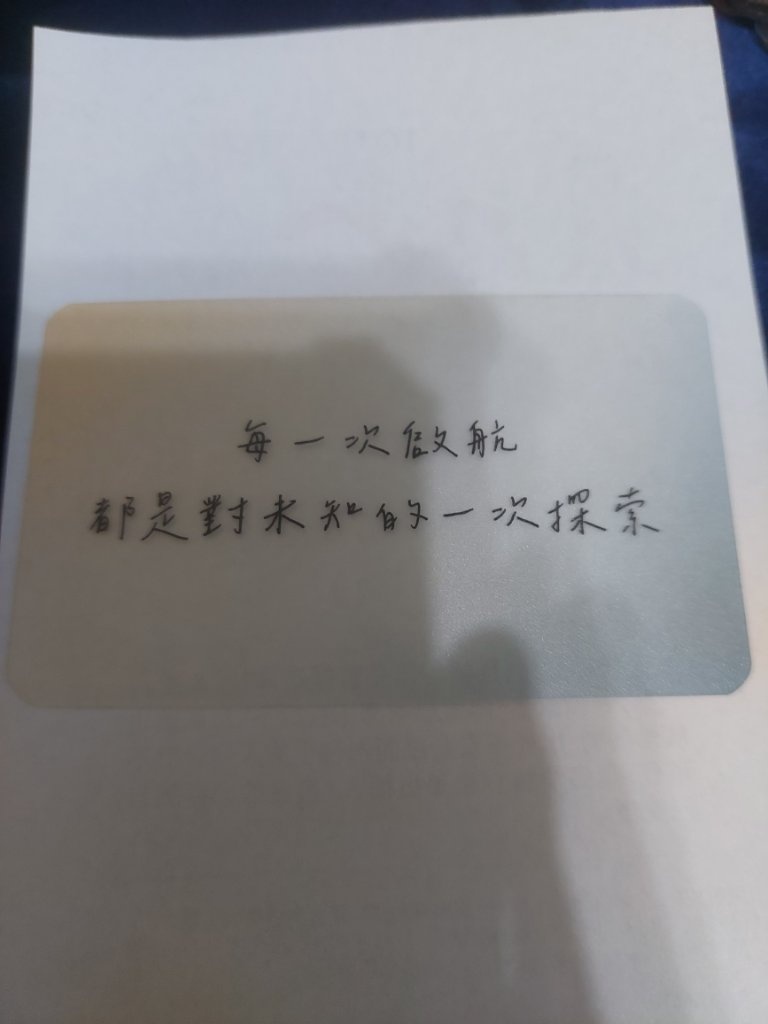 每一次啟航
都是對未知的一次探索